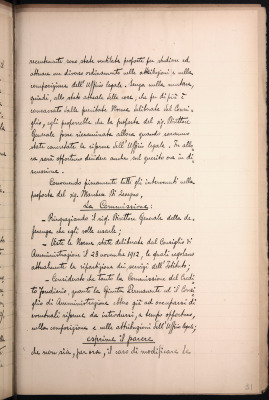 recentemente sono state ventilate proposte per studiare ed
attuare un diverso ordinamento nelle attribuzioni e nella
composizione dell'Ufficio legale. Senza nulla mutare,
quindi, allo stato attuale delle cose, che per di più è
consacrato dalle precitate Norme deliberate dal Consi-
glio, egli proporrebbe che la proposta del sig. Direttore
Generale fosse riesaminata allora quando saranno
state concretate le riforme dell'Ufficio legale. In al-
lora sarà opportuno decidere anche sul quesito ora in di-
scussione.
Convenendo pienamente tutti gli intervenuti nella
proposta del sig. Marchese di
La Commissione:
- Ringraziando il sig. Direttore Generale della de-
ferenza che egli volle usarle;
- Viste le Norme state deliberate dal Consiglio di
Amministrazione il 23 novembre 1912, le quali regolano
attualmente la ripartizione dei servizi dell'Istituto;
- Considerato che tanto la Commissione del Credi-
to Fondiario, quanto la Giunta Permanente ed il Consi-
glio di Amministrazione ebbero già ad occuparsi di
eventuali riforme da introdursi, a tempo opportuno,
nella composizione e nelle attribuzioni dell'Ufficio legale;
esprime il parere
che non sia, per ora, il caso di modificare le
31